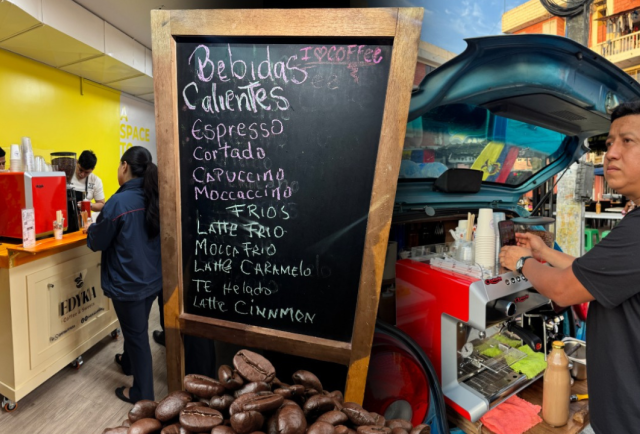 Bebidas
I ♥ COFFEE
Calientes
Espresso
Cortado
Capuccino
Moccaccino
FRIOS
Latte Frio
Mocca Frio
Latte Caramelo
TE Helado
Latte Cinnmon
A
SPACE
EDYKA